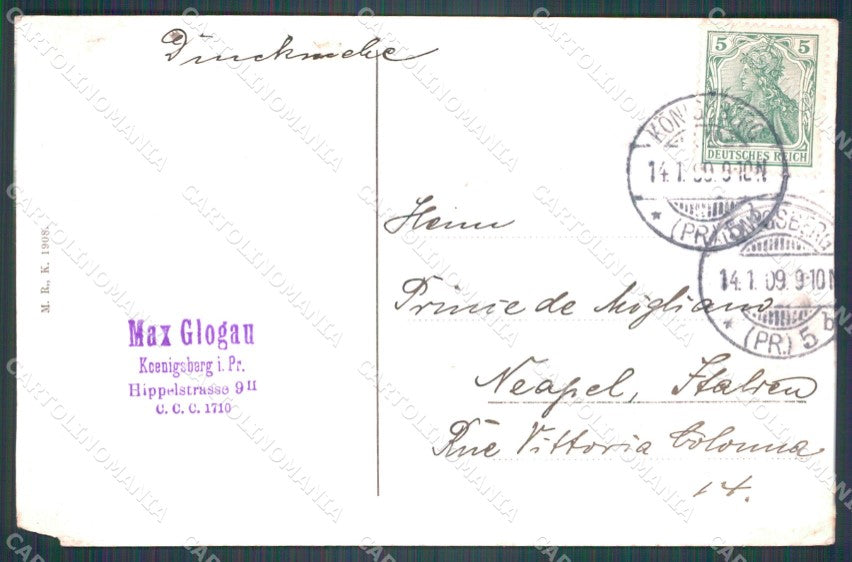 Drucksache
5 5
DEUTSCHES REICH
KÖNIGSBERG
14.1.09.9-10N
(PR.)
KÖNIGSBERG
14.1.09.9-10N
(PR.) 5 b
M. R., K. 1908.
Max Glogau
Koenigsberg i. Pr.
Hippelstrasse 9 II
C. C. C. 1710
Herrn
Prince de Migliano
Neapel, Italien
Rue Vittoria Colonna
14.
CARTOLINOMANIA